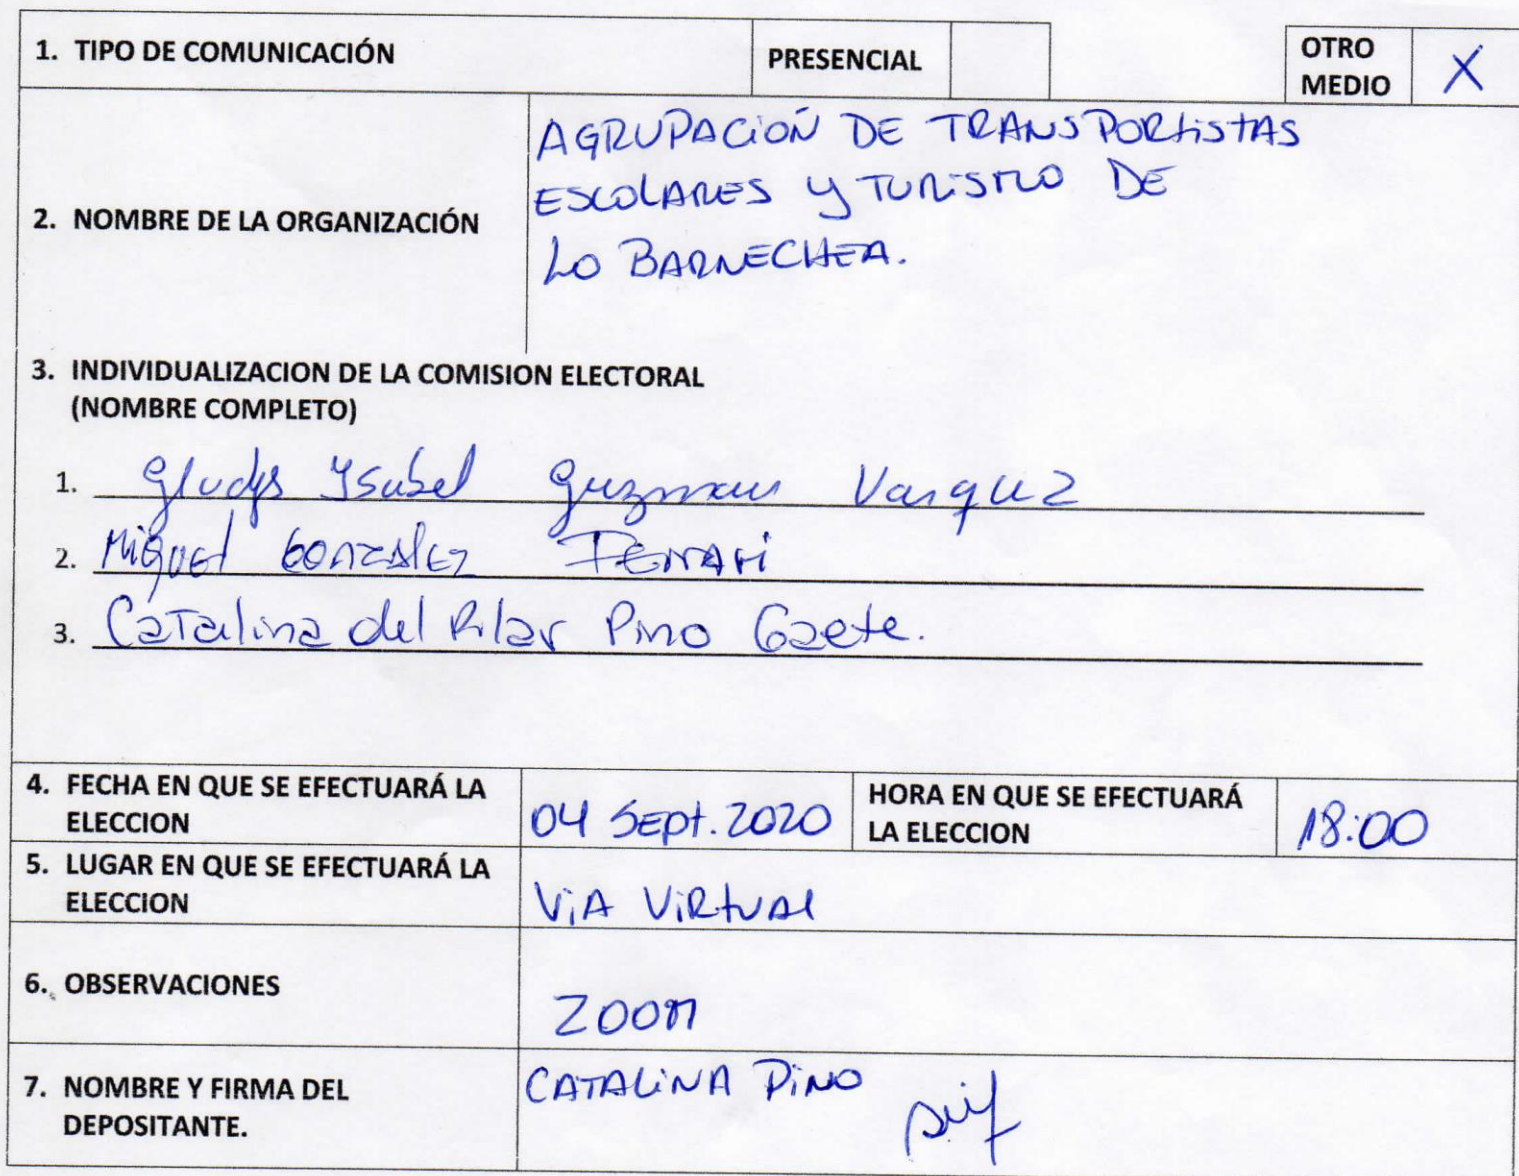 1. TIPO DE COMUNICACIÓN PRESENCIAL OTRO MEDIO X
2. NOMBRE DE LA ORGANIZACIÓN
AGRUPACIÓN DE TRANSPORTISTAS
ESCOLARES Y TURISMO DE
LO BARNECHEA.
3. INDIVIDUALIZACION DE LA COMISION ELECTORAL
(NOMBRE COMPLETO)
1. Gladys Ysabel Guzman Vasquez
2. Miguel Gonzalez Ferrari
3. Catalina del Pilar Pino Gaete.
4. FECHA EN QUE SE EFECTUARÁ LA
ELECCION
04 Sept. 2020
HORA EN QUE SE EFECTUARÁ
LA ELECCION
18:00
5. LUGAR EN QUE SE EFECTUARÁ LA
ELECCION
ViA ViRtUAl
6. OBSERVACIONES
ZOOM
7. NOMBRE Y FIRMA DEL
DEPOSITANTE.
CATALiNA PiNO